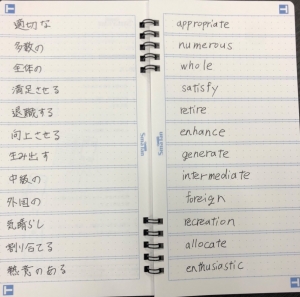 適切な
多数の
全体の
満足させる
退職する
向上させる
生み出す
中級の
外国の
気晴らし
割り当てる
熱意のある
appropriate
numerous
whole
satisfy
retire
enhance
generate
intermediate
foreign
recreation
allocate
enthusiastic